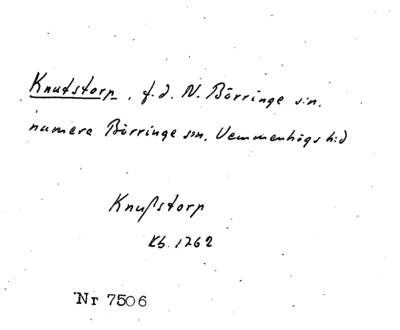 Knutstorp, f.d. N. Börringe sn.
numera Börringe sn, Vemmenhögs hd
Knußstorp
Kb. 1762
Nr 7506